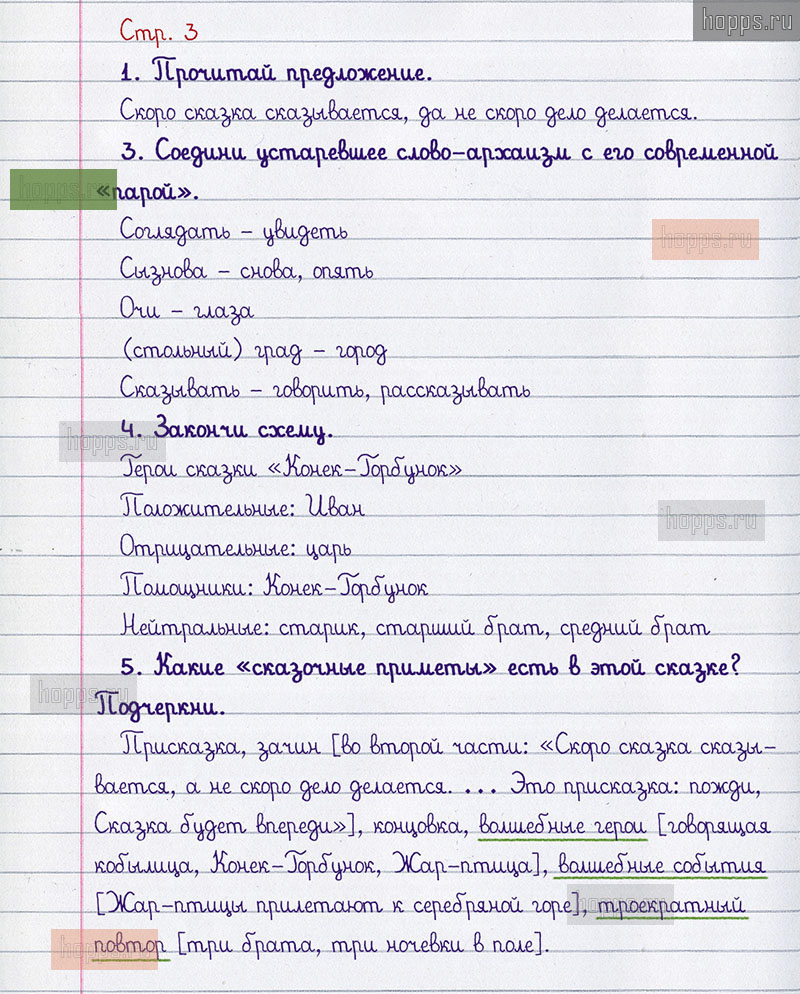 hopps.ru
Стр. 3
1. Прочитай предложение.
Скоро сказка сказывается, да не скоро дело делается.
3. Соедини устаревшее слово-архаизм с его современной
hopps.ru
«парой».
Соглядать – увидеть
hopps.ru
Сызнова – снова, опять
Очи – глаза
(стольный) град – город
Сказывать – говорить, рассказывать
4. Закончи схему.
hopps.ru
Герои сказки «Конек-Горбунок»
Положительные: Иван
hopps.ru
Отрицательные: царь
Помощники: Конек-Горбунок
Нейтральные: старик, старший брат, средний брат
5. Какие «сказочные приметы» есть в этой сказке?
hopps.ru
Подчеркни.
Присказка, зачин [во второй части: «Скоро сказка сказы-
вается, а не скоро дело делается. ... Это присказка: пожди,
Сказка будет впереди»], концовка, волшебные герои [говорящая
кобылица, Конек-Горбунок, Жар-птица], волшебные события
[Жар-птицы прилетают к серебряной горе], троекратный
hopps.ru
повтор [три брата, три ночевки в поле].
hopps.ru